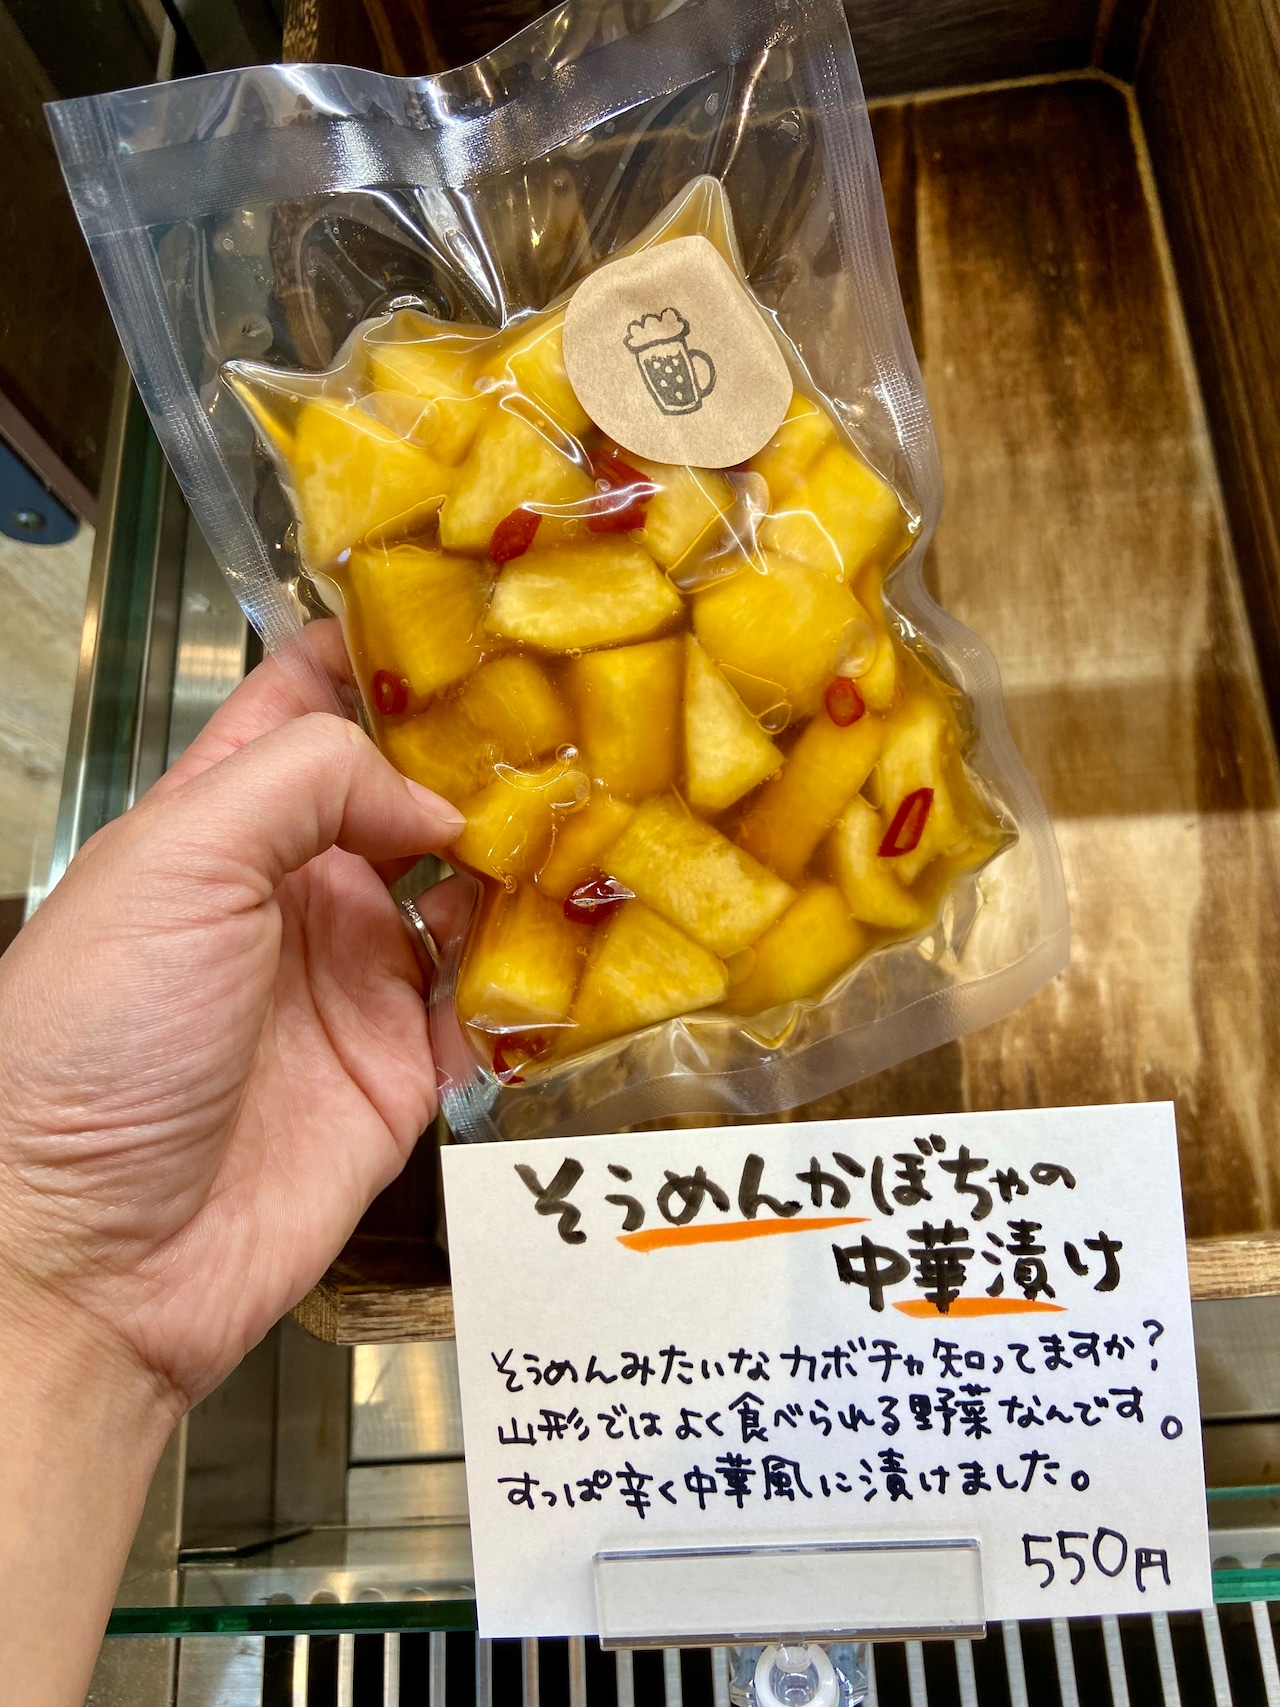 そうめんかぼちゃの
中華漬け
そうめんみたいなカボチャ知ってますか?
山形ではよく食べられる野菜なんです。
すっぱ辛く中華風に漬けました。
550円